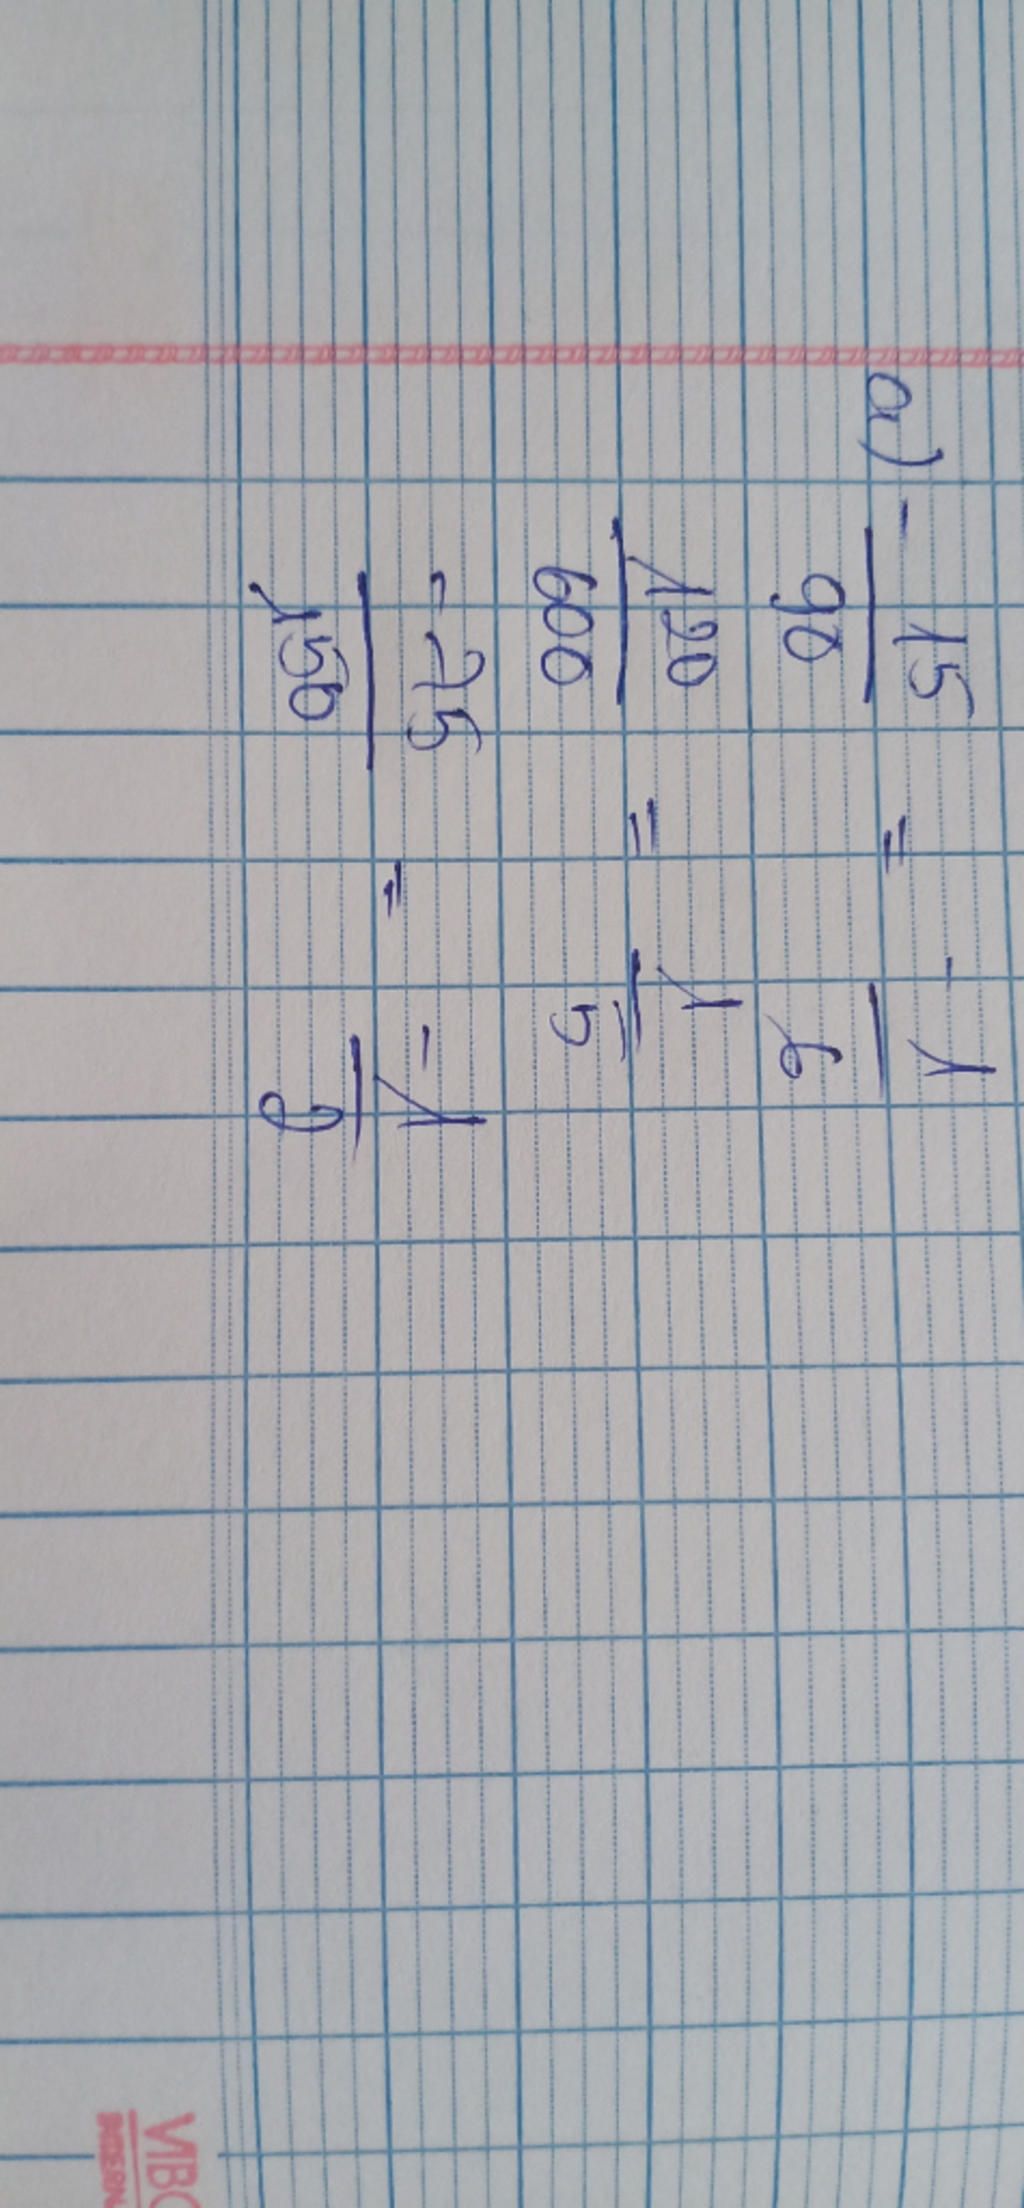 a) - 15/90 = - 1/6
120/600 = 1/5
- 75/150 = - 1/2
VIBO